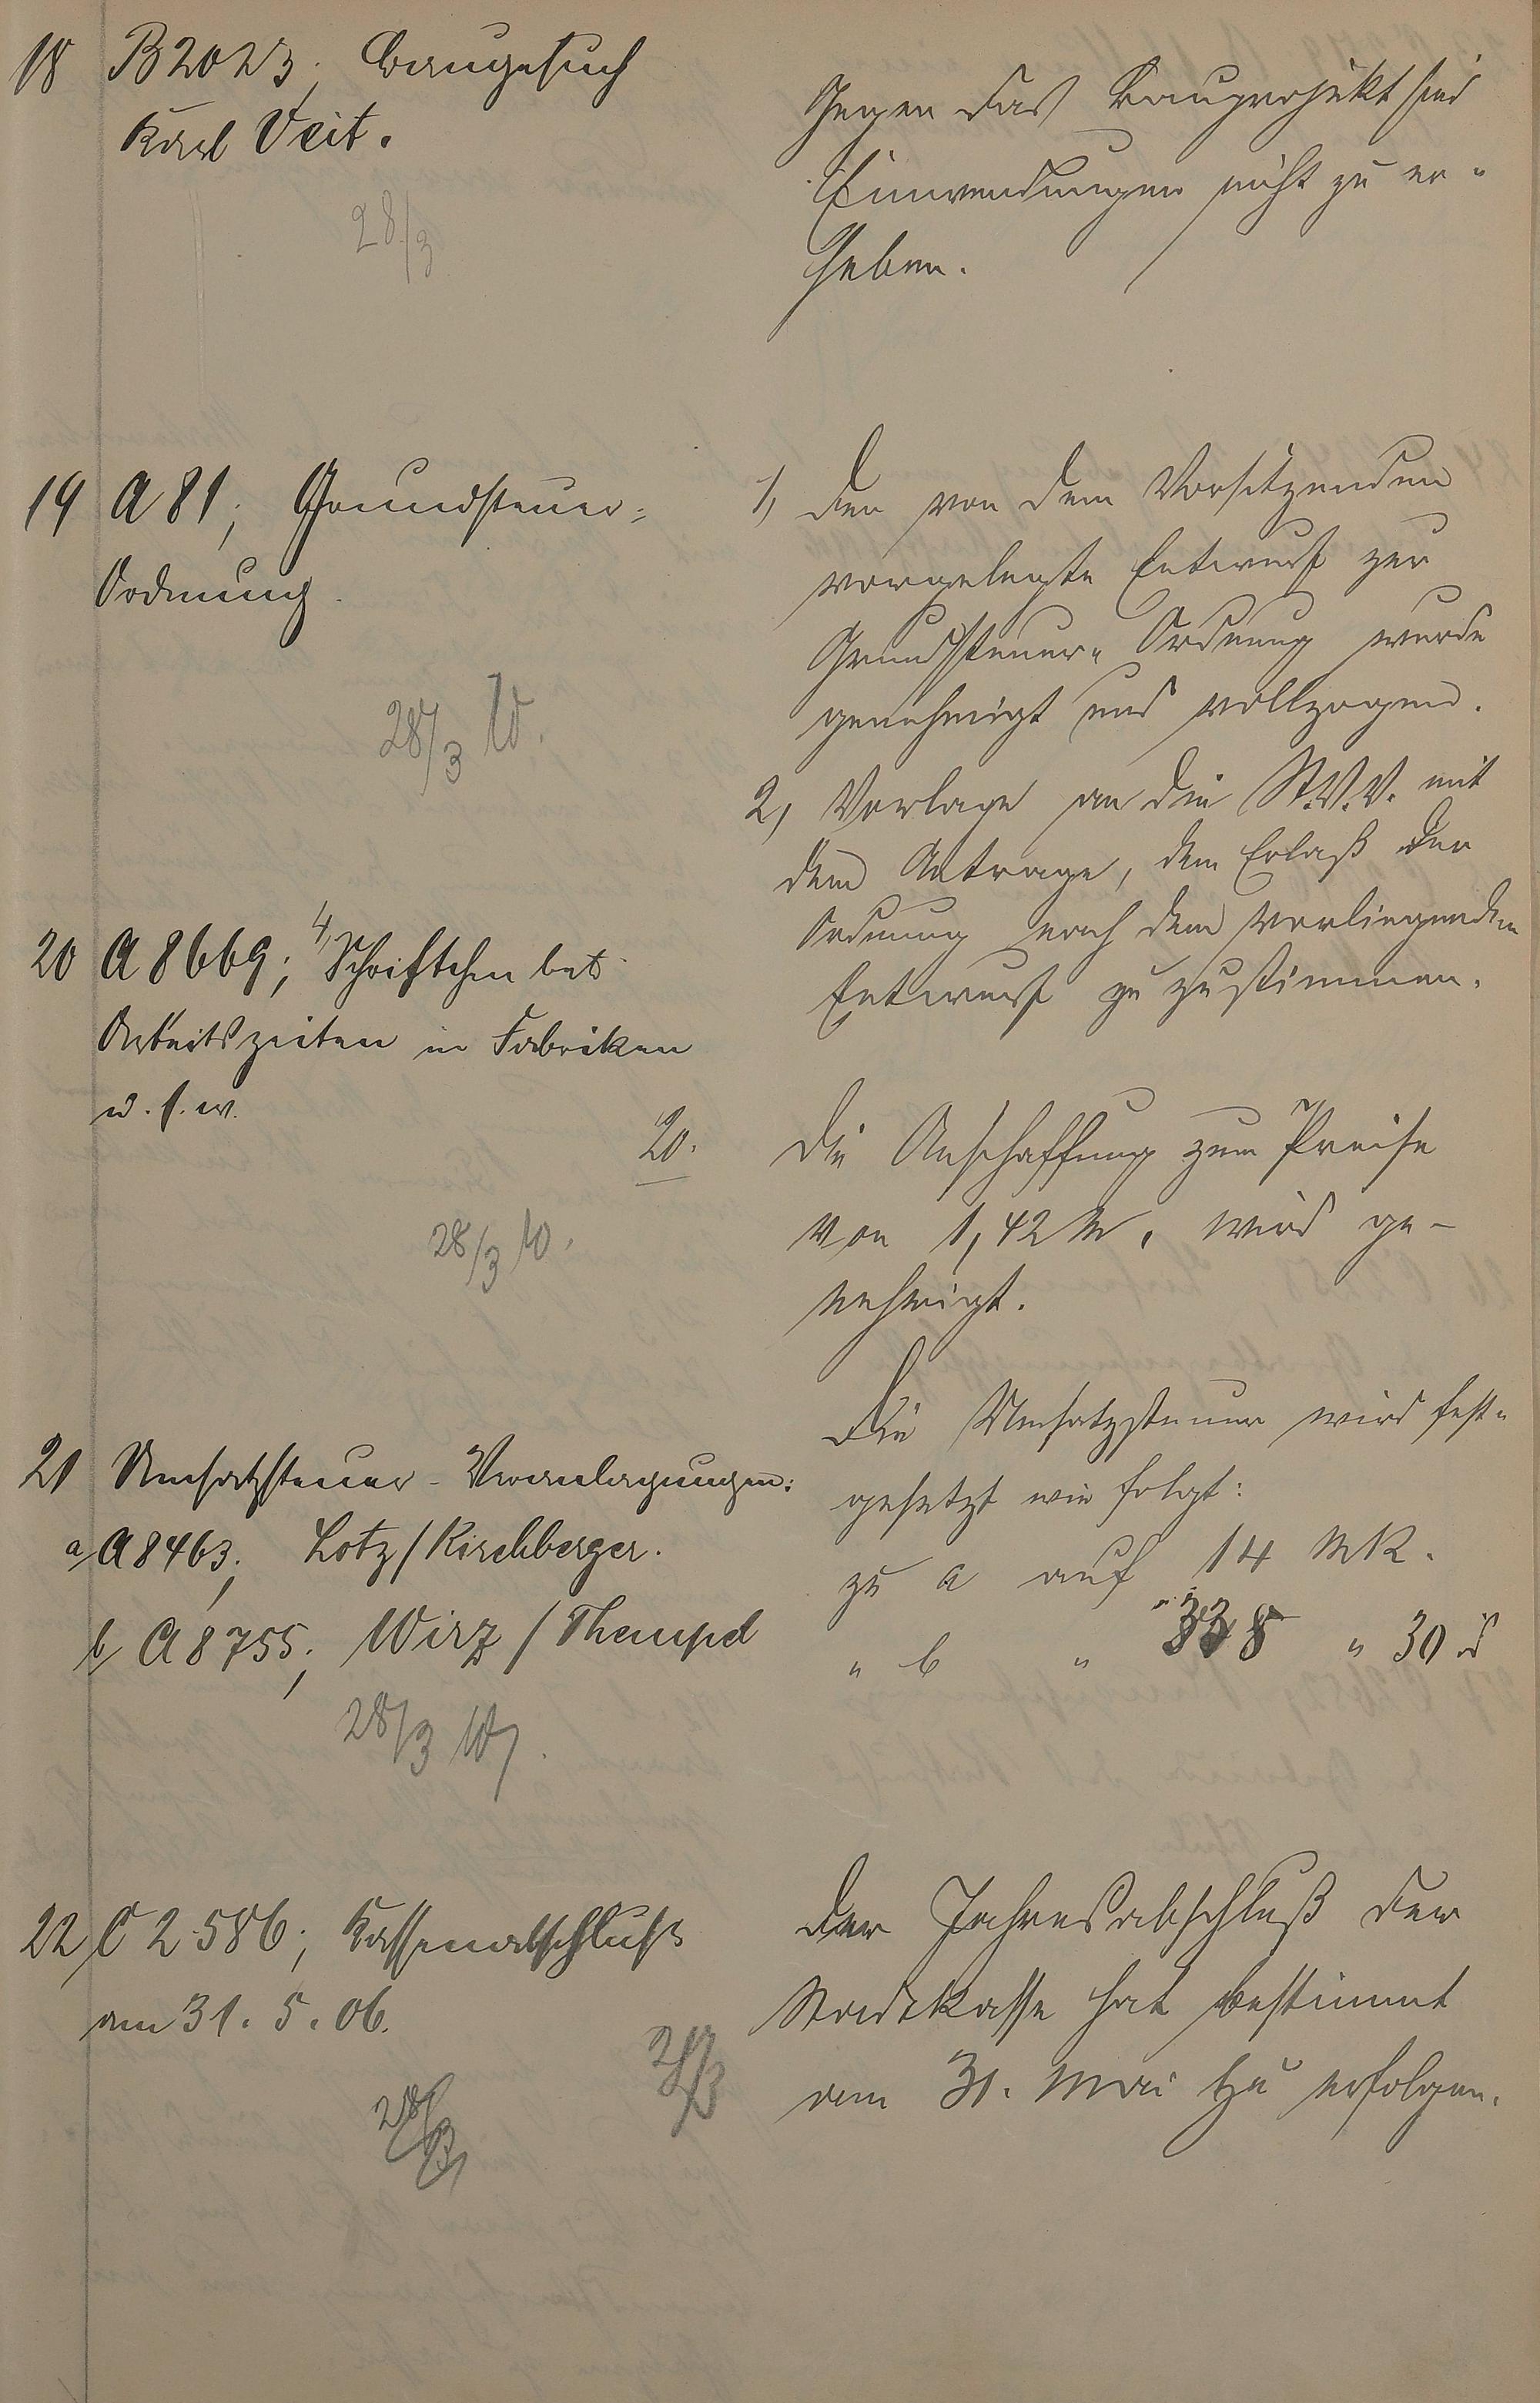 18 B 2023; Baugesuch
Karl Veit.
28/3
Gegen das Bauprojekt sind
Einwendungen nicht zu er-
heben.
19 A 81; Grundsteuer=
Ordnung.
28/3 W.
1, Der von dem Vorsitzenden
vorgelegte Entwurf zur
Grundsteuer-Ordnung wurde
genehmigt und vollzogen.
2, Vorlage an die St.V.V. mit
dem Antrage, dem Erlaß der
Ordnung nach dem vorliegenden
Entwurf zu zustimmen.
20 A 8669; 4, Schriftchen betr.
Arbeitszeiten in Fabriken
u. s. w.
28/3 W.
20. Die Anschaffung zum Preise
von 1,42 M, wird ge-
nehmigt.
21 Umsatzsteuer-Veranlagungen:
a/ A 8463; Lotz/Kirchberger.
b/ A 8755; Wirz/
28/3 W.
Die Umsatzsteuer wird fest-
gesetzt wie folgt:
zu a auf 14 MK.
" b " 338 " 30 d
22 C 2586; Kassenabschluß
am 31. 5. 06.
28/3
28/3
Der Jahresabschluß der
Stadtkasse hat bestimmt
am 31. Mai zu erfolgen.